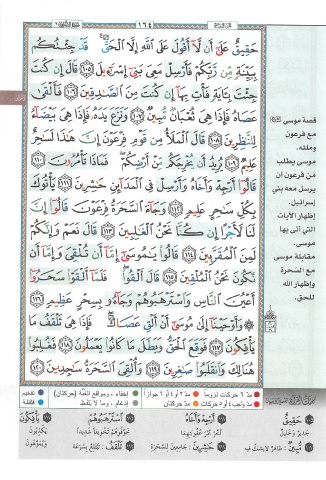 ١٦٤
حَقِيقٌ عَلَىٰٓ أَن لَّآ أَقُولَ عَلَى ٱللَّهِ إِلَّا ٱلْحَقَّ قَدْ جِئْتُكُم
بِبَيِّنَةٍ مِّن رَّبِّكُمْ فَأَرْسِلْ مَعِيَ بَنِىٓ إِسْرَٰٓءِيلَ ١٠٥ قَالَ إِن كُنتَ
جِئْتَ بِـَٔايَةٍ فَأْتِ بِهَآ إِن كُنتَ مِنَ ٱلصَّـٰدِقِينَ ١٠٦ فَأَلْقَىٰ
عَصَاهُ فَإِذَا هِىَ ثُعْبَانٌ مُّبِينٌ ١٠٧ وَنَزَعَ يَدَهُۥ فَإِذَا هِىَ بَيْضَآءُ
لِلنَّـٰظِرِينَ ١٠٨ قَالَ ٱلْمَلَأُ مِن قَوْمِ فِرْعَوْنَ إِنَّ هَـٰذَا لَسَـٰحِرٌ
عَلِيمٌ ١٠٩ يُرِيدُ أَن يُخْرِجَكُم مِّنْ أَرْضِكُمْ فَمَاذَا تَأْمُرُونَ ١١٠
قَالُوٓا۟ أَرْجِهْ وَأَخَاهُ وَأَرْسِلْ فِى ٱلْمَدَآئِنِ حَـٰشِرِينَ ١١١ يَأْتُوكَ
بِكُلِّ سَـٰحِرٍ عَلِيمٍ ١١٢ وَجَآءَ ٱلسَّحَرَةُ فِرْعَوْنَ قَالُوٓا۟ إِنَّ
لَنَا لَأَجْرًا إِن كُنَّا نَحْنُ ٱلْغَـٰلِبِينَ ١١٣ قَالَ نَعَمْ وَإِنَّكُمْ
لَمِنَ ٱلْمُقَرَّبِينَ ١١٤ قَالُوا۟ يَـٰمُوسَىٰٓ إِمَّآ أَن تُلْقِىَ وَإِمَّآ أَن
نَّكُونَ نَحْنُ ٱلْمُلْقِينَ ١١٥ قَالَ أَلْقُوا۟ فَلَمَّآ أَلْقَوْا۟ سَحَرُوٓا۟
أَعْيُنَ ٱلنَّاسِ وَٱسْتَرْهَبُوهُمْ وَجَآءُو بِسِحْرٍ عَظِيمٍ ١١٦
وَأَوْحَيْنَآ إِلَىٰ مُوسَىٰٓ أَنْ أَلْقِ عَصَاكَ فَإِذَا هِىَ تَلْقَفُ مَا
يَأْفِكُونَ ١١٧ فَوَقَعَ ٱلْحَقُّ وَبَطَلَ مَا كَانُوا۟ يَعْمَلُونَ ١١٨ فَغُلِبُوا۟
هُنَالِكَ وَٱنقَلَبُوا۟ صَـٰغِرِينَ ١١٩ وَأُلْقِىَ ٱلسَّحَرَةُ سَـٰجِدِينَ ١٢٠
قصة موسى
مع فرعون
وملئه.
موسى يطلب
من فرعون أن
يرسل معه بني
إسرائيل.
إظهار الآيات
التي أتى بها
موسى.
مقابلة موسى
مع السحرة
وإظهار الله
للحق.
مد ٦ حركات لزوما مد ٢ أو ٤ أو ٦ جوازا إخفاء، ومواقع الغنّة (حركتان) تفخيم
مد واجب ٤ أو ٥ حركات مد حركتان إدغام، وما لا يُلفظ قلقلة
حَقِيقٌ
أَرْجِهْ وَأَخَاهُ
ٱسْتَرْهَبُوهُمْ
يَأْفِكُونَ